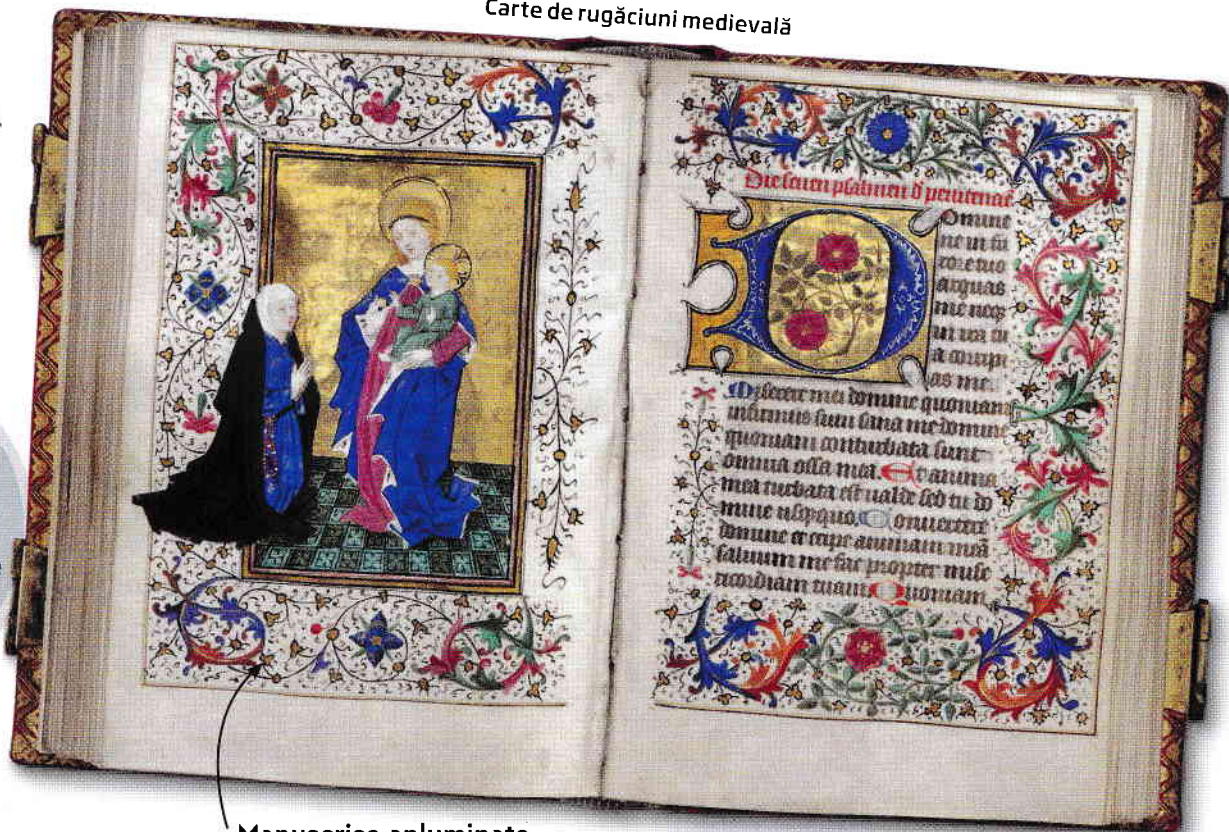 Carte de rugăciuni medievală
Die seuen psalmen d penitenae
Domine
ne in fu
rore tuo
arguas
me neq
in ira tu
a corripi
as me.
Miserere mei domine quoniam
infirmus sum sana me domine
quoniam conturbata sunt
omnia ossa mea. Et anima
mea turbata est ualde sed tu do
mine usquequo. Conuertere
domine et eripe animam meā
saluum me fac propter mise
ricordiam tuam. Quoniam
Manuscrise anluminate